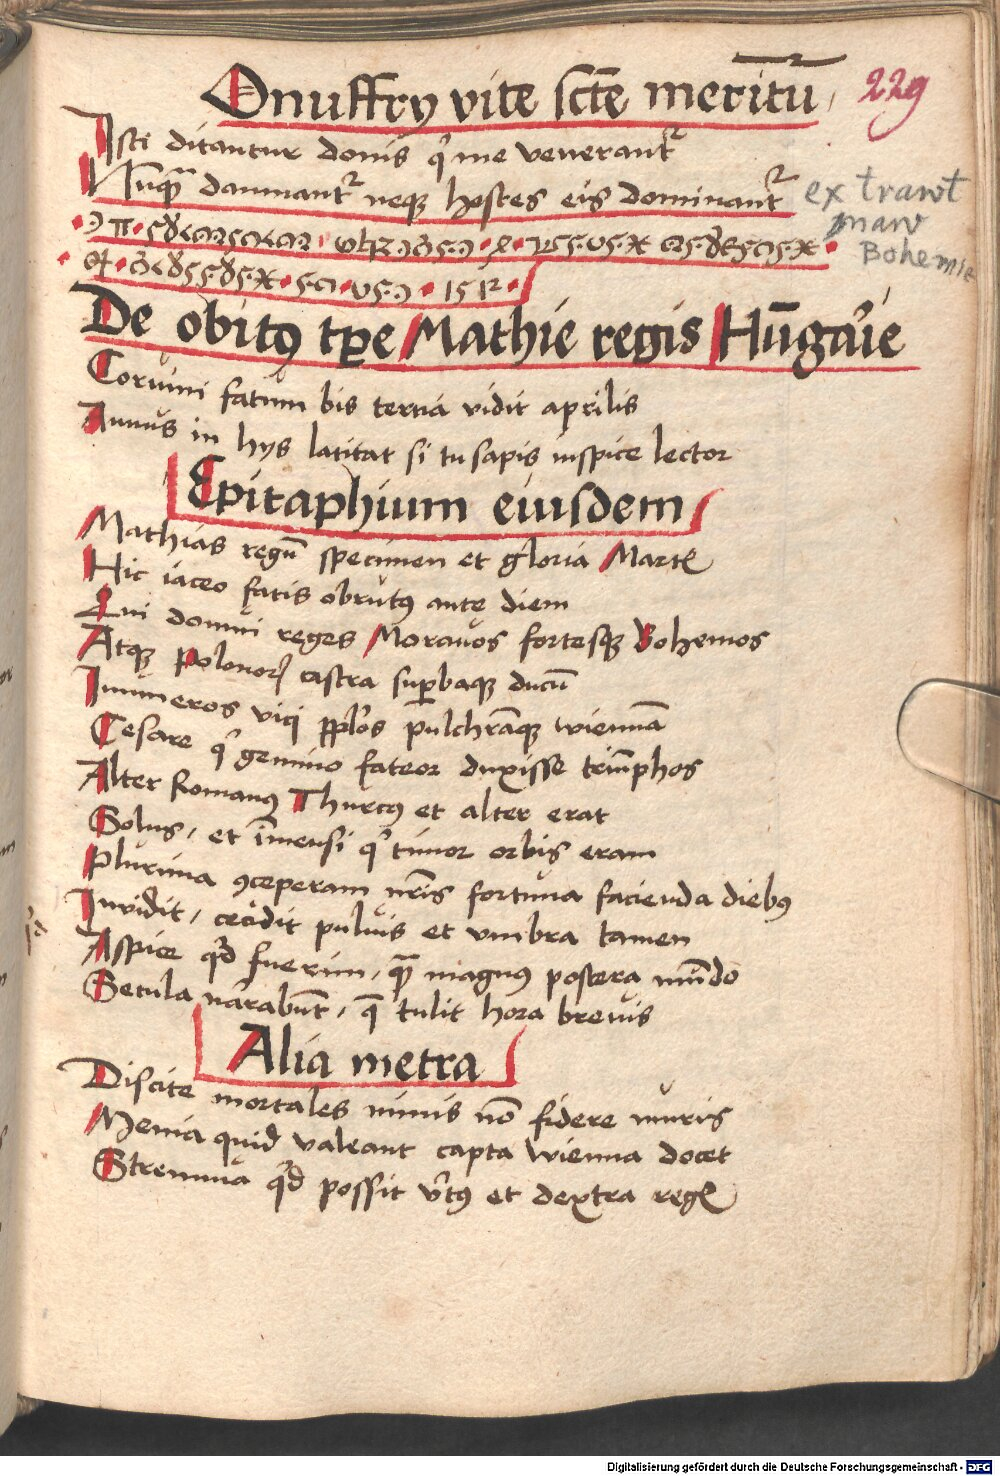 Onuffry vite scte meritu
229
Isti ditantur donis q me venerant
Nuqa damnant neque hostes eis dominant
ex trawt
maw
Bohemie
1512
De obitu tpe Mathie regis Hungarie
Coruini fatum bis tertia vidit aprilis
Annus in hys latitat si tu sapis inspice lector
Epitaphium eiusdem
Mathias regu specimen et gloria Martis
Hic iaceo fatis obrutus ante diem
Qui domui reges Morauos fortesque Bohemos
Atque Polonor castra superbaque ducu
Inumeros vici pplos pulchraque wienna
Cesare q gemino fateor duxisse triumphos
Alter Romanus Thurcus et alter erat
Solus, et imensi q timor orbis eram
Plurima conceperam nris fortuna facienda diebus
Inuidit, cecidit puluis et vmbra tamen
Aspice qd fuerim, qa magnus postera mundo
Secula narabunt, qe tulit hora breuis
Alia metra
Discite mortales nimis no fidere muris
Menia quid valeant capta wienna docet
Strennua qd possit virtus et dextra regis
Digitalisierung gefördert durch die Deutsche Forschungsgemeinschaft - DFG